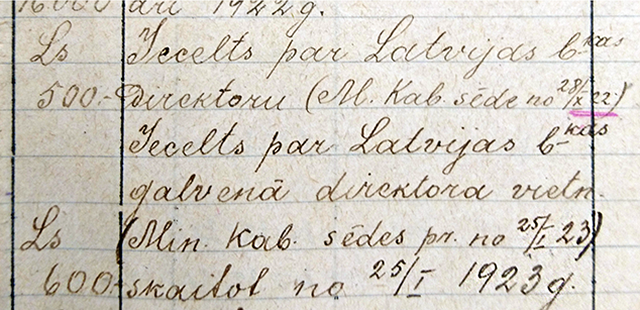 16.000 ari 1922g.
Ls Iecelts par Latvijas b-kas
500.- direktoru (M. Kab. sēde no 28/X 22)
Iecelts par Latvijas b-kas
galvenā direktora vietn.
Ls (Min. Kab. sēdes pr. no 25/I 23)
600.- skaitot no 25/I 1923g.